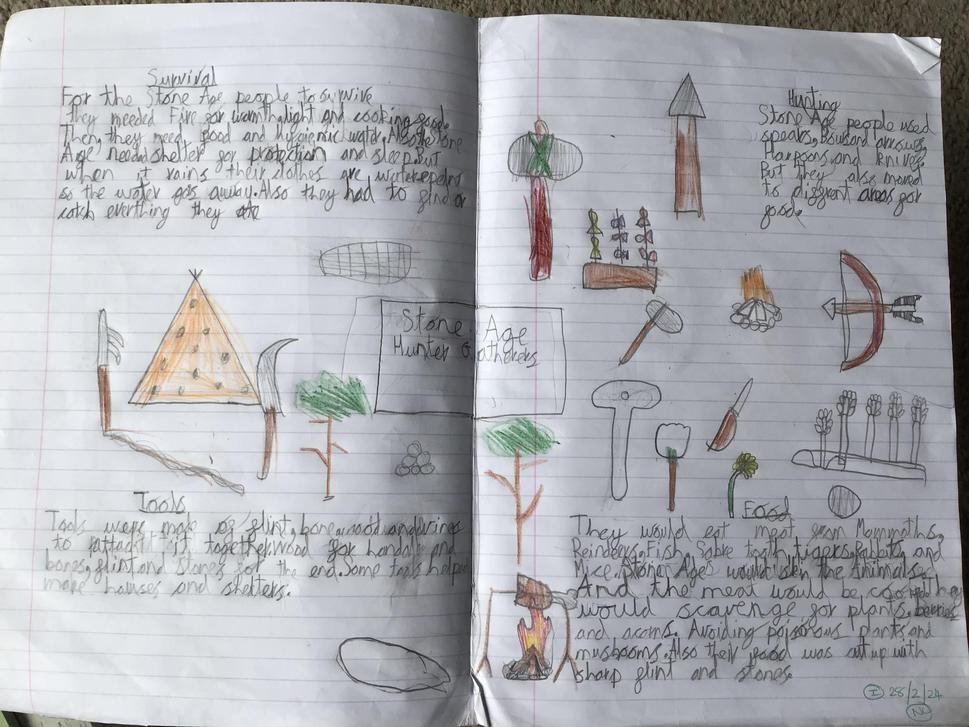 Survival
For the Stone Age people to survive
they needed Fire for warmth, light and cooking food.
Then, they need food and hygienic water. Also the Stone
Age need shelter for protection and sleep. But
when it rains their clothes are
so the water gos away. Also they had to find or
catch everthing they ate
Hunting
Stone Age people used
spears, arrows,
Harpoons and knives.
But they also moved
to diffrent areas for
food.
Stone Age
Hunter Gatherers
Tools
Tools were made of flint, bone, wood and
to it together. Wood for handle and
bones, flint and stones for the end. Some tools helped
make houses and shelters.
Food
They would eat meat from Mammoths,
Reindeers, Fish, Sabre tooth tigers, Rabbits and
Mice. Stone Ages would skin the Animals.
And the meat would be They
would scavenge for plants, berries
and acorns. Avoiding poisonous plants and
mushooms. Also their food was cut up with
sharp flint and stones.
I 28/2/24